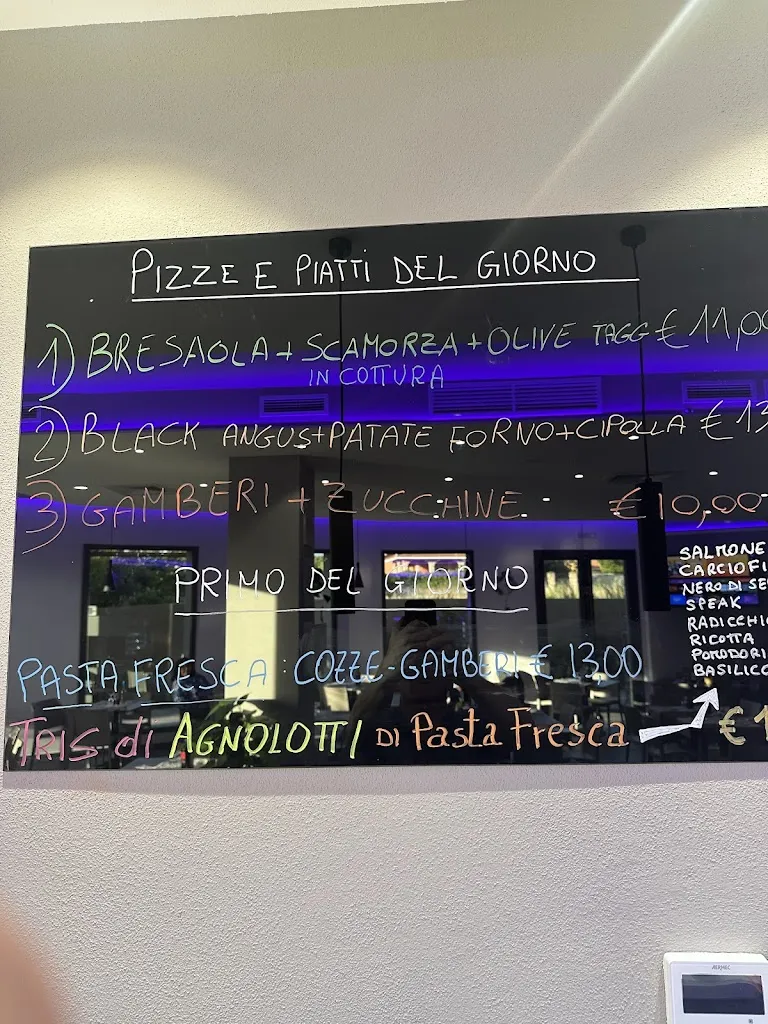 PIZZE E PIATTI DEL GIORNO
1) BRESAOLA + SCAMORZA + OLIVE TAGG € 11,00
IN COTTURA
2) BLACK ANGUS + PATATE FORNO + CIPOLLA € 13
3) GAMBERI + ZUCCHINE € 10,00
PRIMO DEL GIORNO
PASTA FRESCA: COZZE-GAMBERI € 13,00
SALMONE
CARCIOFI
NERO DI SE
SPEAK
RADICCHIO
RICOTTA
POMODORI
BASILICO
TRIS di AGNOLOTTI DI Pasta Fresca € 1